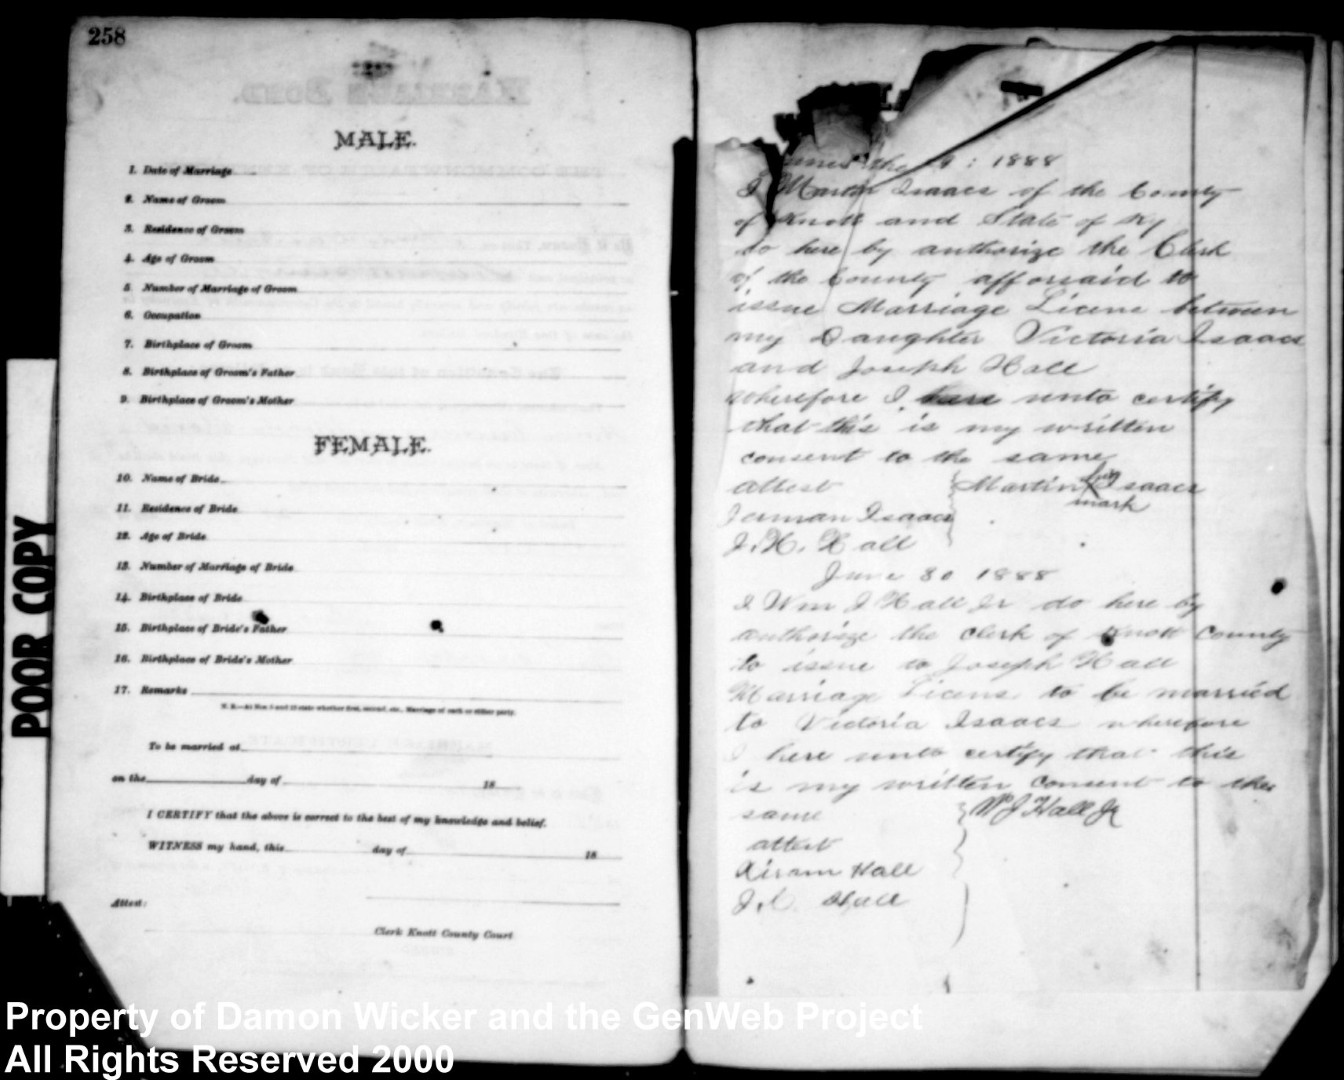 258
MALE.
1. Date of Marriage
2. Name of Groom
3. Residence of Groom
4. Age of Groom
5. Number of Marriage of Groom
6. Occupation
7. Birthplace of Groom
8. Birthplace of Groom's Father
9. Birthplace of Groom's Mother
FEMALE.
10. Name of Bride
11. Residence of Bride
12. Age of Bride
13. Number of Marriage of Bride
14. Birthplace of Bride
15. Birthplace of Bride's Father
16. Birthplace of Bride's Mother
17. Remarks
N. B.—At Nos. 5 and 13 state whether first, second, etc., Marriage of each or either party.
To be married at
on the day of 18
I CERTIFY that the above is correct to the best of my knowledge and belief.
WITNESS my hand, this day of 18
Attest:
Clerk Knott County Court
the 1888
I Martin Isaacs of the County
of Knott and State of Ky
do here by authorize the Clerk
of the County afforsaid to
issue Marriage Licens between
my Daughter Victoria Isaacs
and Joseph Hall
wherefore I here unto certify
that this is my written
consent to the same
attest } Martin his X Isaacs
mark
Jerman Isaacs
J. H. Hall
June 30 1888
I Wm J Hall Jr do here by
authorize the clerk of Knott County
to issue to Joseph Hall
Marriage Licens to be married
to Victoria Isaacs wherefore
I here unto certify that this
is my written consent to the
same } W J Hall Jr
attest
Hiram Hall
J. C. Hall
POOR COPY
Property of Damon Wicker and the GenWeb Project
All Rights Reserved 2000